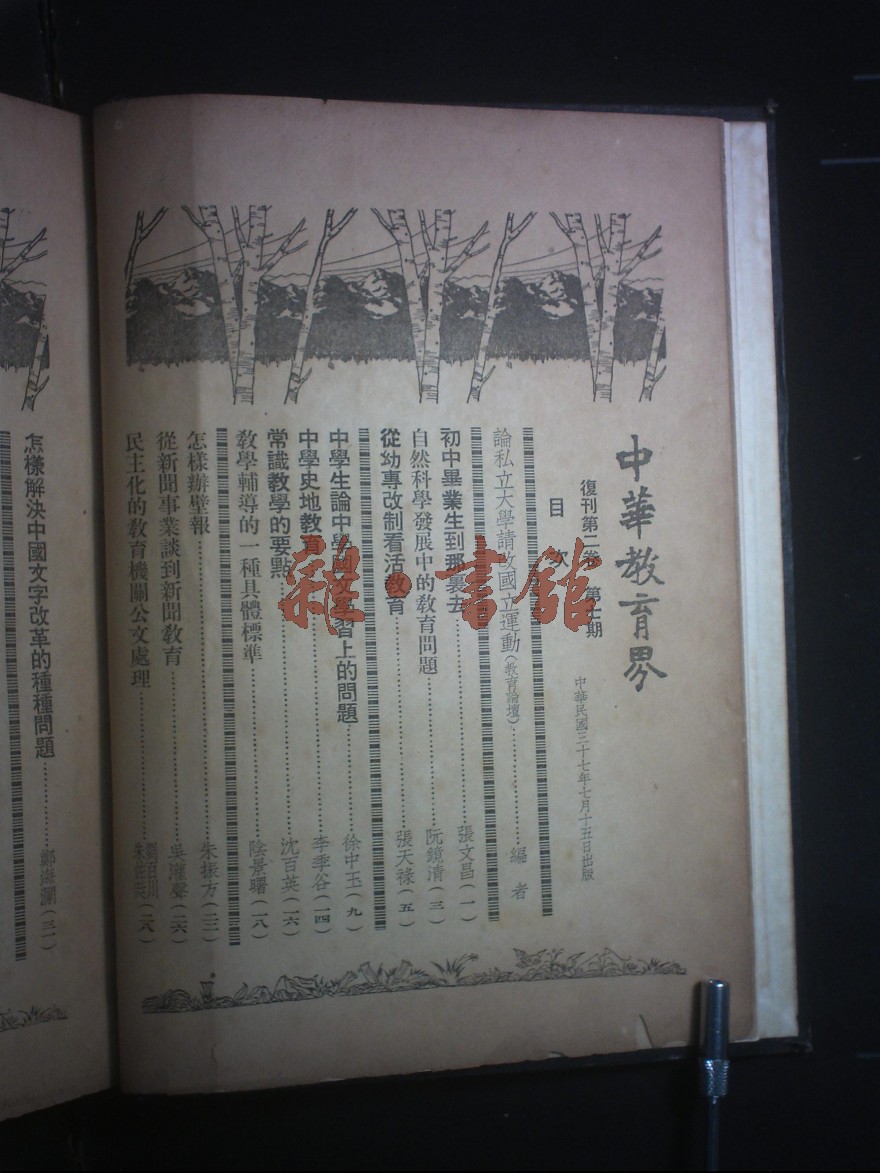 中華教育界
復刊第二卷 第七期
中華民國三十七年七月十五日出版
目次
論私立大學請改國立運動(教育論壇)……編者
初中畢業生到那裏去……張文昌(一)
自然科學發展中的教育問題……阮鏡清(三)
從幼專改制看活教育……張天祿(五)
中學生論中學國文學習上的問題……徐中玉(九)
中學史地教育……李季谷(一四)
常識教學的要點……沈百英(一六)
教學輔導的一種具體標準……陰景曙(一八)
怎樣辦壁報……朱振方(二二)
從新聞事業談到新聞教育……吳灌聲(二六)
民主化的教育機關公文處理……劉百川(二八)
怎樣解決中國文字改革的種種問題……鄭海瀾(三一)
雜·書館